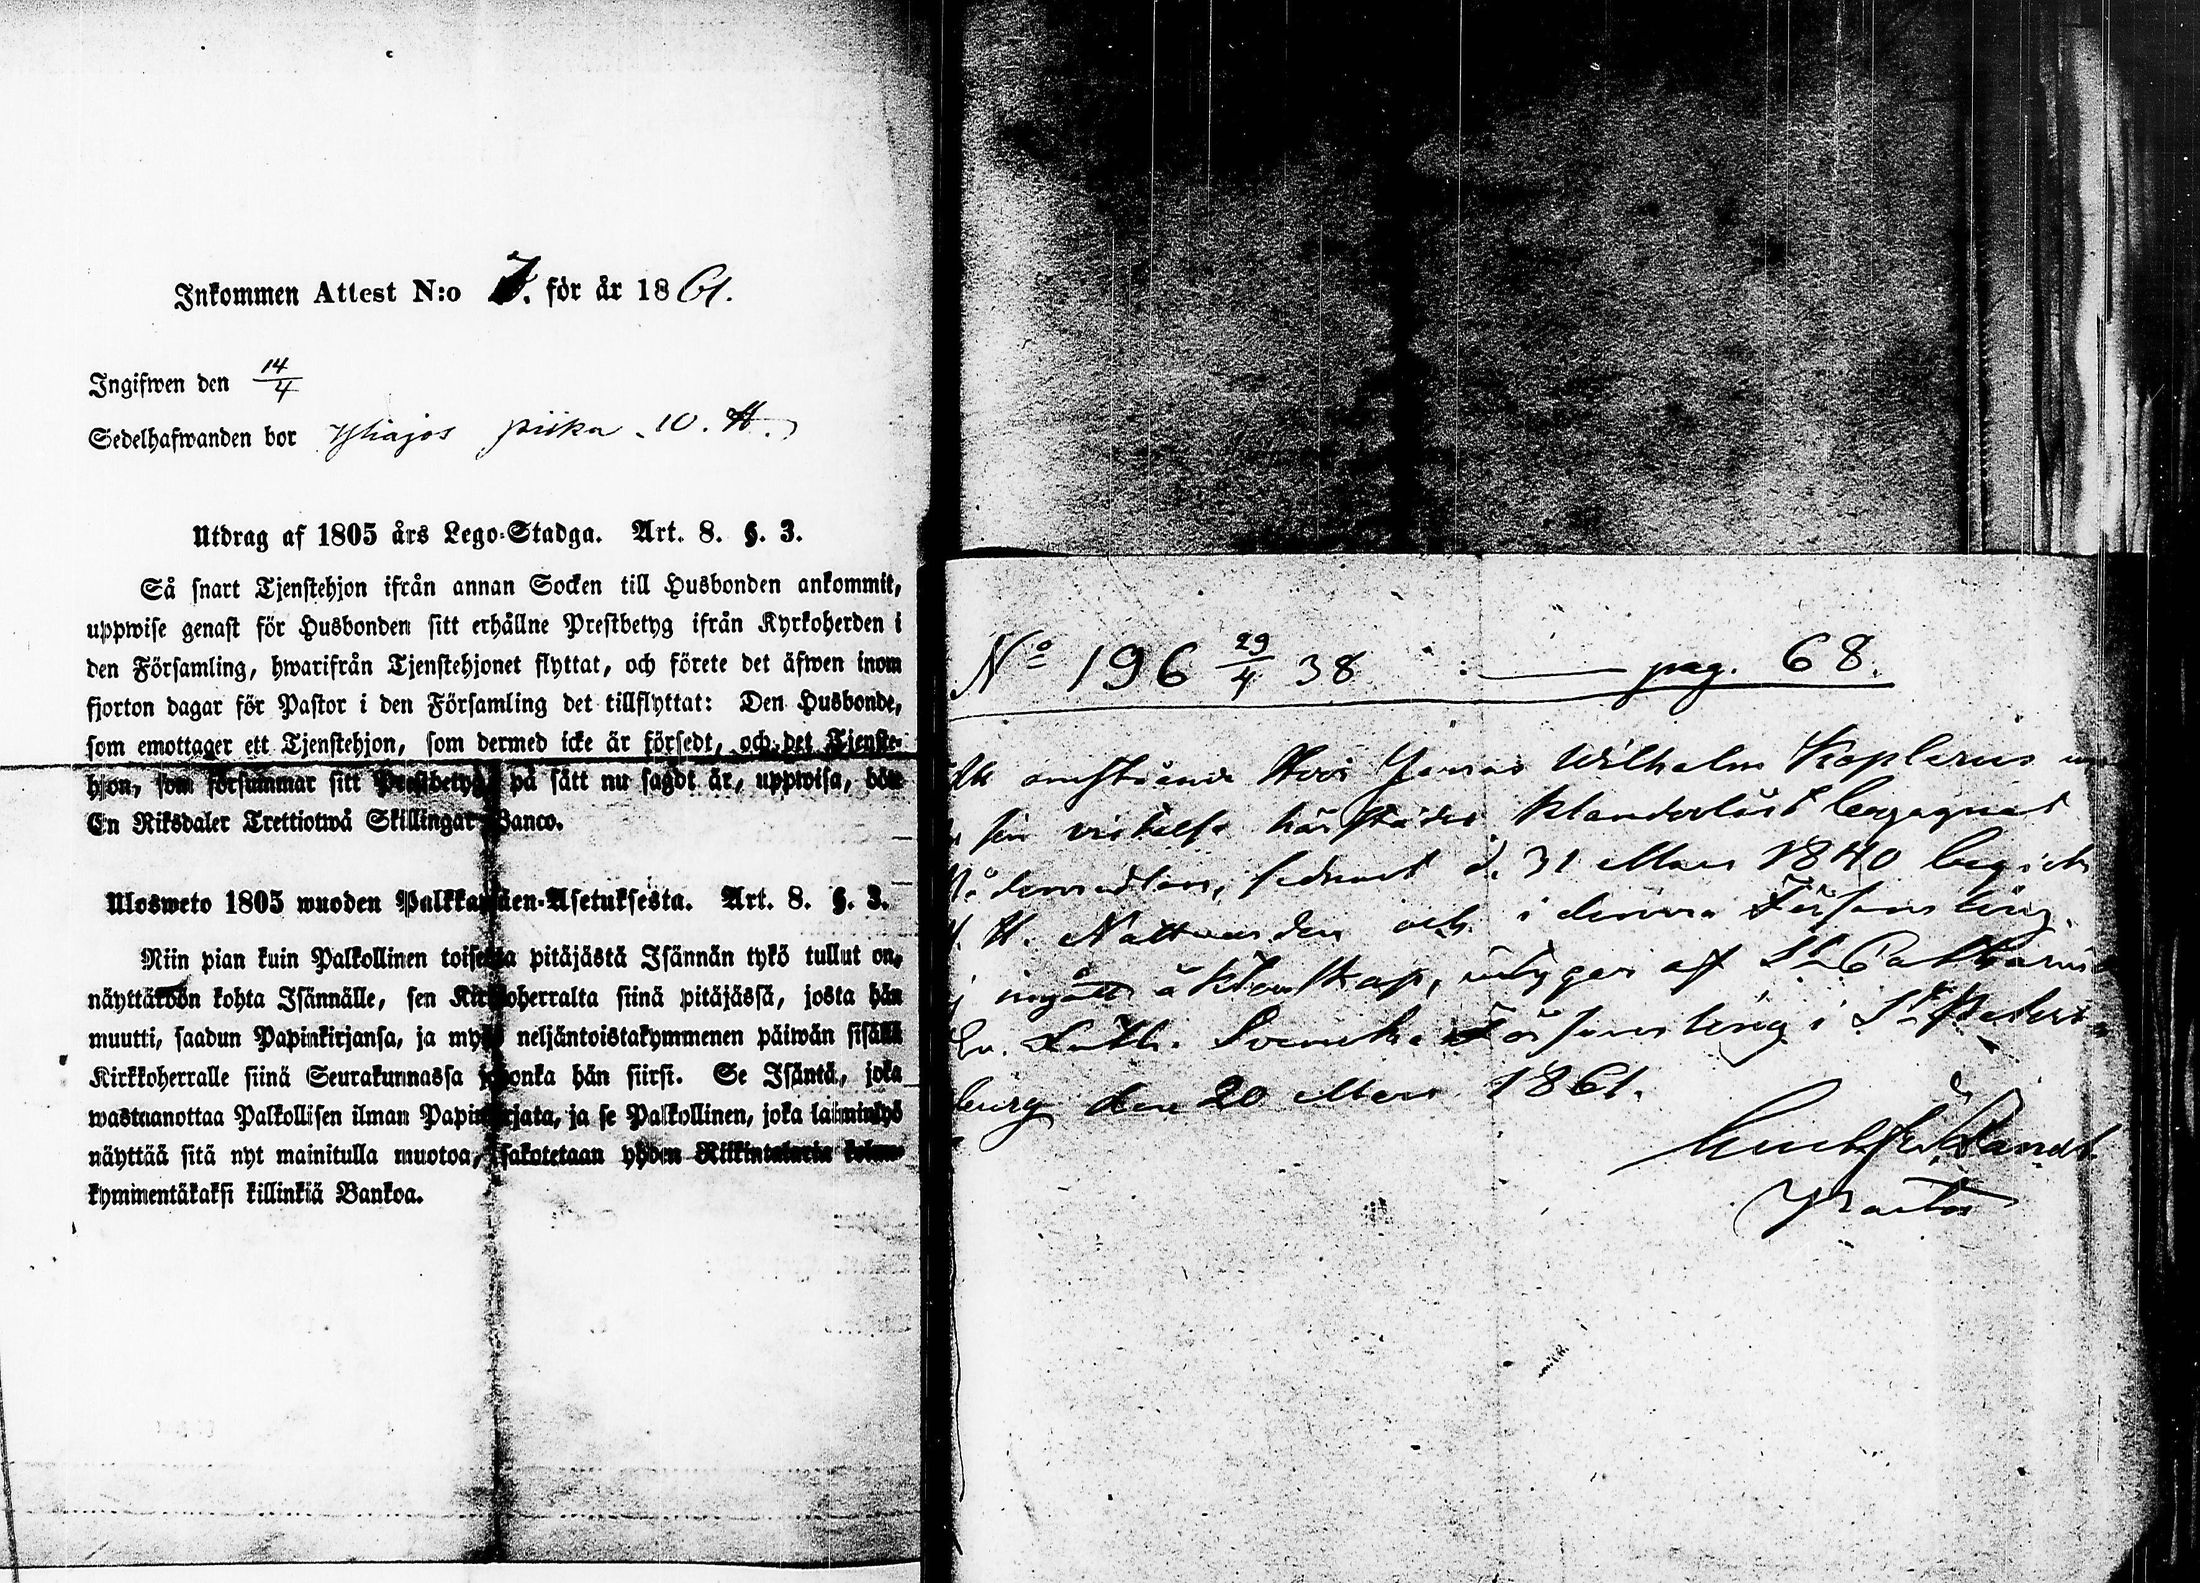 Inkommen Attest N:o 7. för år 1861.
Ingifwen den 14/4
Sedelhafwanden bor Yliajos piika 10. H.
Utdrag af 1805 års Lego-Stadga. Art. 8. §. 3.
Så snart Tjenstehjon ifrån annan Socken till Husbonden ankommit,
uppwise genast för Husbonden sitt erhållne Prestbetyg ifrån Kyrkoherden i
den Församling, hwarifrån Tjenstehjonet flyttat, och förete det äfwen inom
fjorton dagar för Pastor i den Församling det tillflyttat: Den Husbonde,
som emottager ett Tjenstehjon, som dermed icke är försedt, och det Tjenste-
hjon, som försummar sitt Prestbetyg, på sätt nu sagdt är, uppwisa, böte
En Riksdaler Trettiotwå Skillingar Banco.
Ulosweto 1805 wuoden Palkkawäen-Asetuksesta. Art. 8. §. 3.
Niin pian kuin Palkollinen toisesta pitäjästä Isännän tykö tullut on,
näyttäköön kohta Isännälle, sen Kirkkoherralta siinä pitäjässä, josta hän
muutti, saadun Papinkirjansa, ja myös neljäntoistakymmenen päiwän sisällä
Kirkkoherralle siinä Seurakunnassa johonka hän siirsi. Se Isäntä, joka
wastaanottaa Palkollisen ilman Papinkirjata, ja se Palkollinen, joka laiminlyö
näyttää sitä nyt mainitulla muotoa, sakotetaan yhden Riikintalarin kolme-
kymmentäkaksi killinkiä Bankoa.
No 196 29/4 38 : — pag. 68.
Att omstående Herr Jonas Wilhelm Koplerus
sin vistelse härstädes klanderlöst begagnat
Nådemedlen, sednast d. 31 Mars 1840 begick
H. H. Nattvarden och i denna Församling
ej ingått äktenskap, intygar af St Catharina
Ev. Luth. Svenska Församling i St Peters-
burg den 20 Mars 1861.
Pastor